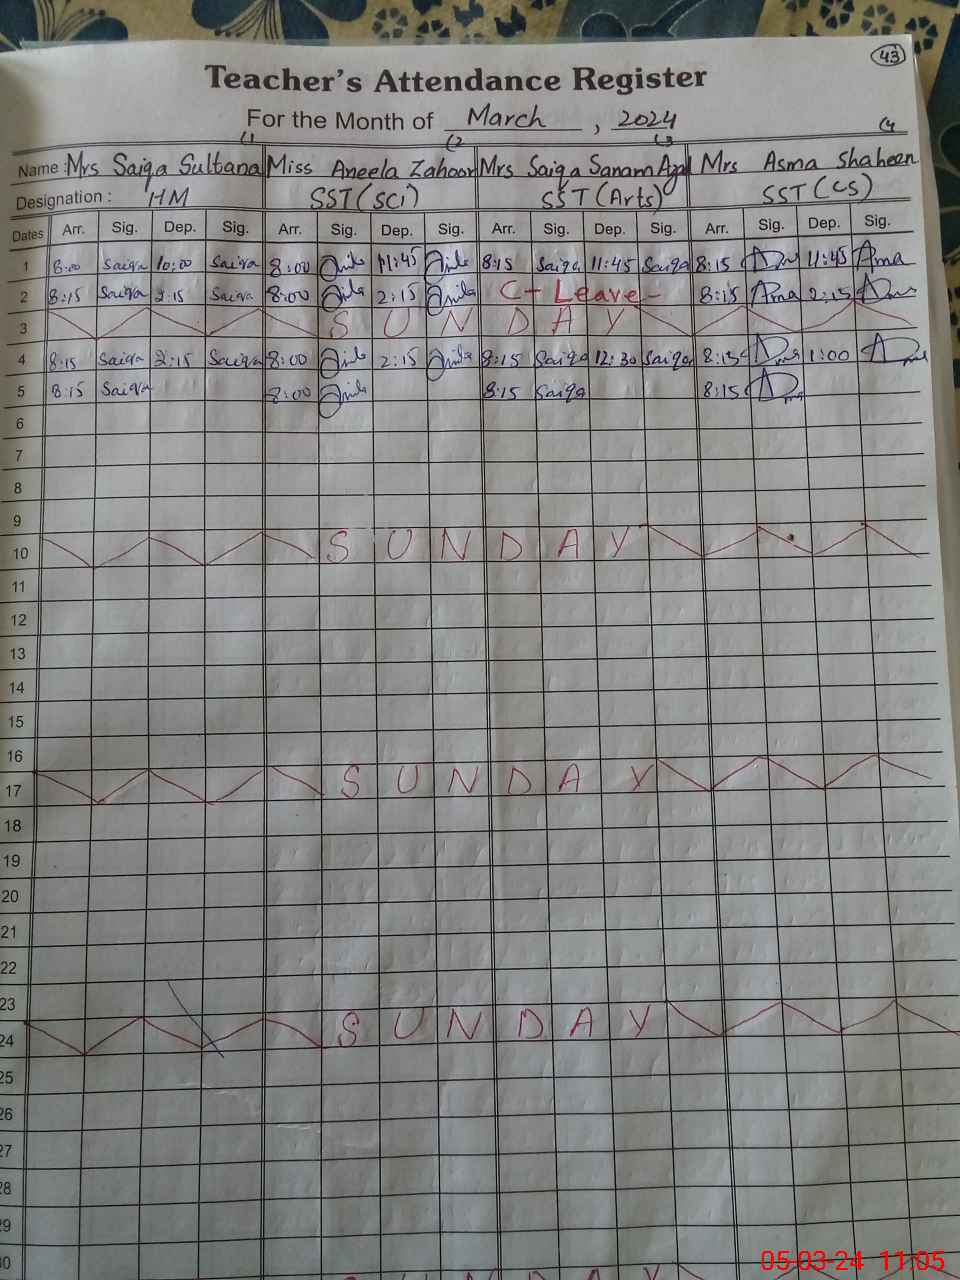 43
Teacher's Attendance Register
For the Month of March, 2024
(1 (2 (3 (4
Name: Mrs Saiqa Sultana Miss Aneela Zahoor Mrs Saiqa Sanam Mrs Asma Shaheen
Designation: HM SST(SCI) SST(Arts) SST(CS)
Dates Arr. Sig. Dep. Sig. Arr. Sig. Dep. Sig. Arr. Sig. Dep. Sig. Arr. Sig. Dep. Sig.
1 8:00 Saiqa 10:00 Saiqa 8:00 11:45 8:15 Saiqa 11:45 Saiqa 8:15 11:45 Asma
2 8:15 Saiqa 2:15 Saiqa 8:00 2:15 C-Leave- 8:15 Asma 2:15
3 SUNDAY
4 8:15 Saiqa 2:15 Saiqa 8:00 2:15 8:15 Saiqa 12:30 Saiqa 8:15 1:00
5 8:15 Saiqa 8:00 8:15 Saiqa 8:15
6
7
8
9
10 SUNDAY
11
12
13
14
15
16
17 SUNDAY
18
19
20
21
22
23
24 SUNDAY
25
26
27
28
29
05-03-24 11:05